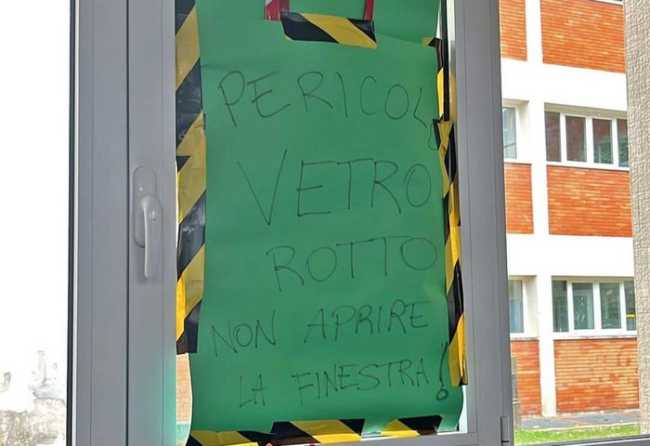 PERICOLO
VETRO
ROTTO
NON APRIRE
LA FINESTRA!